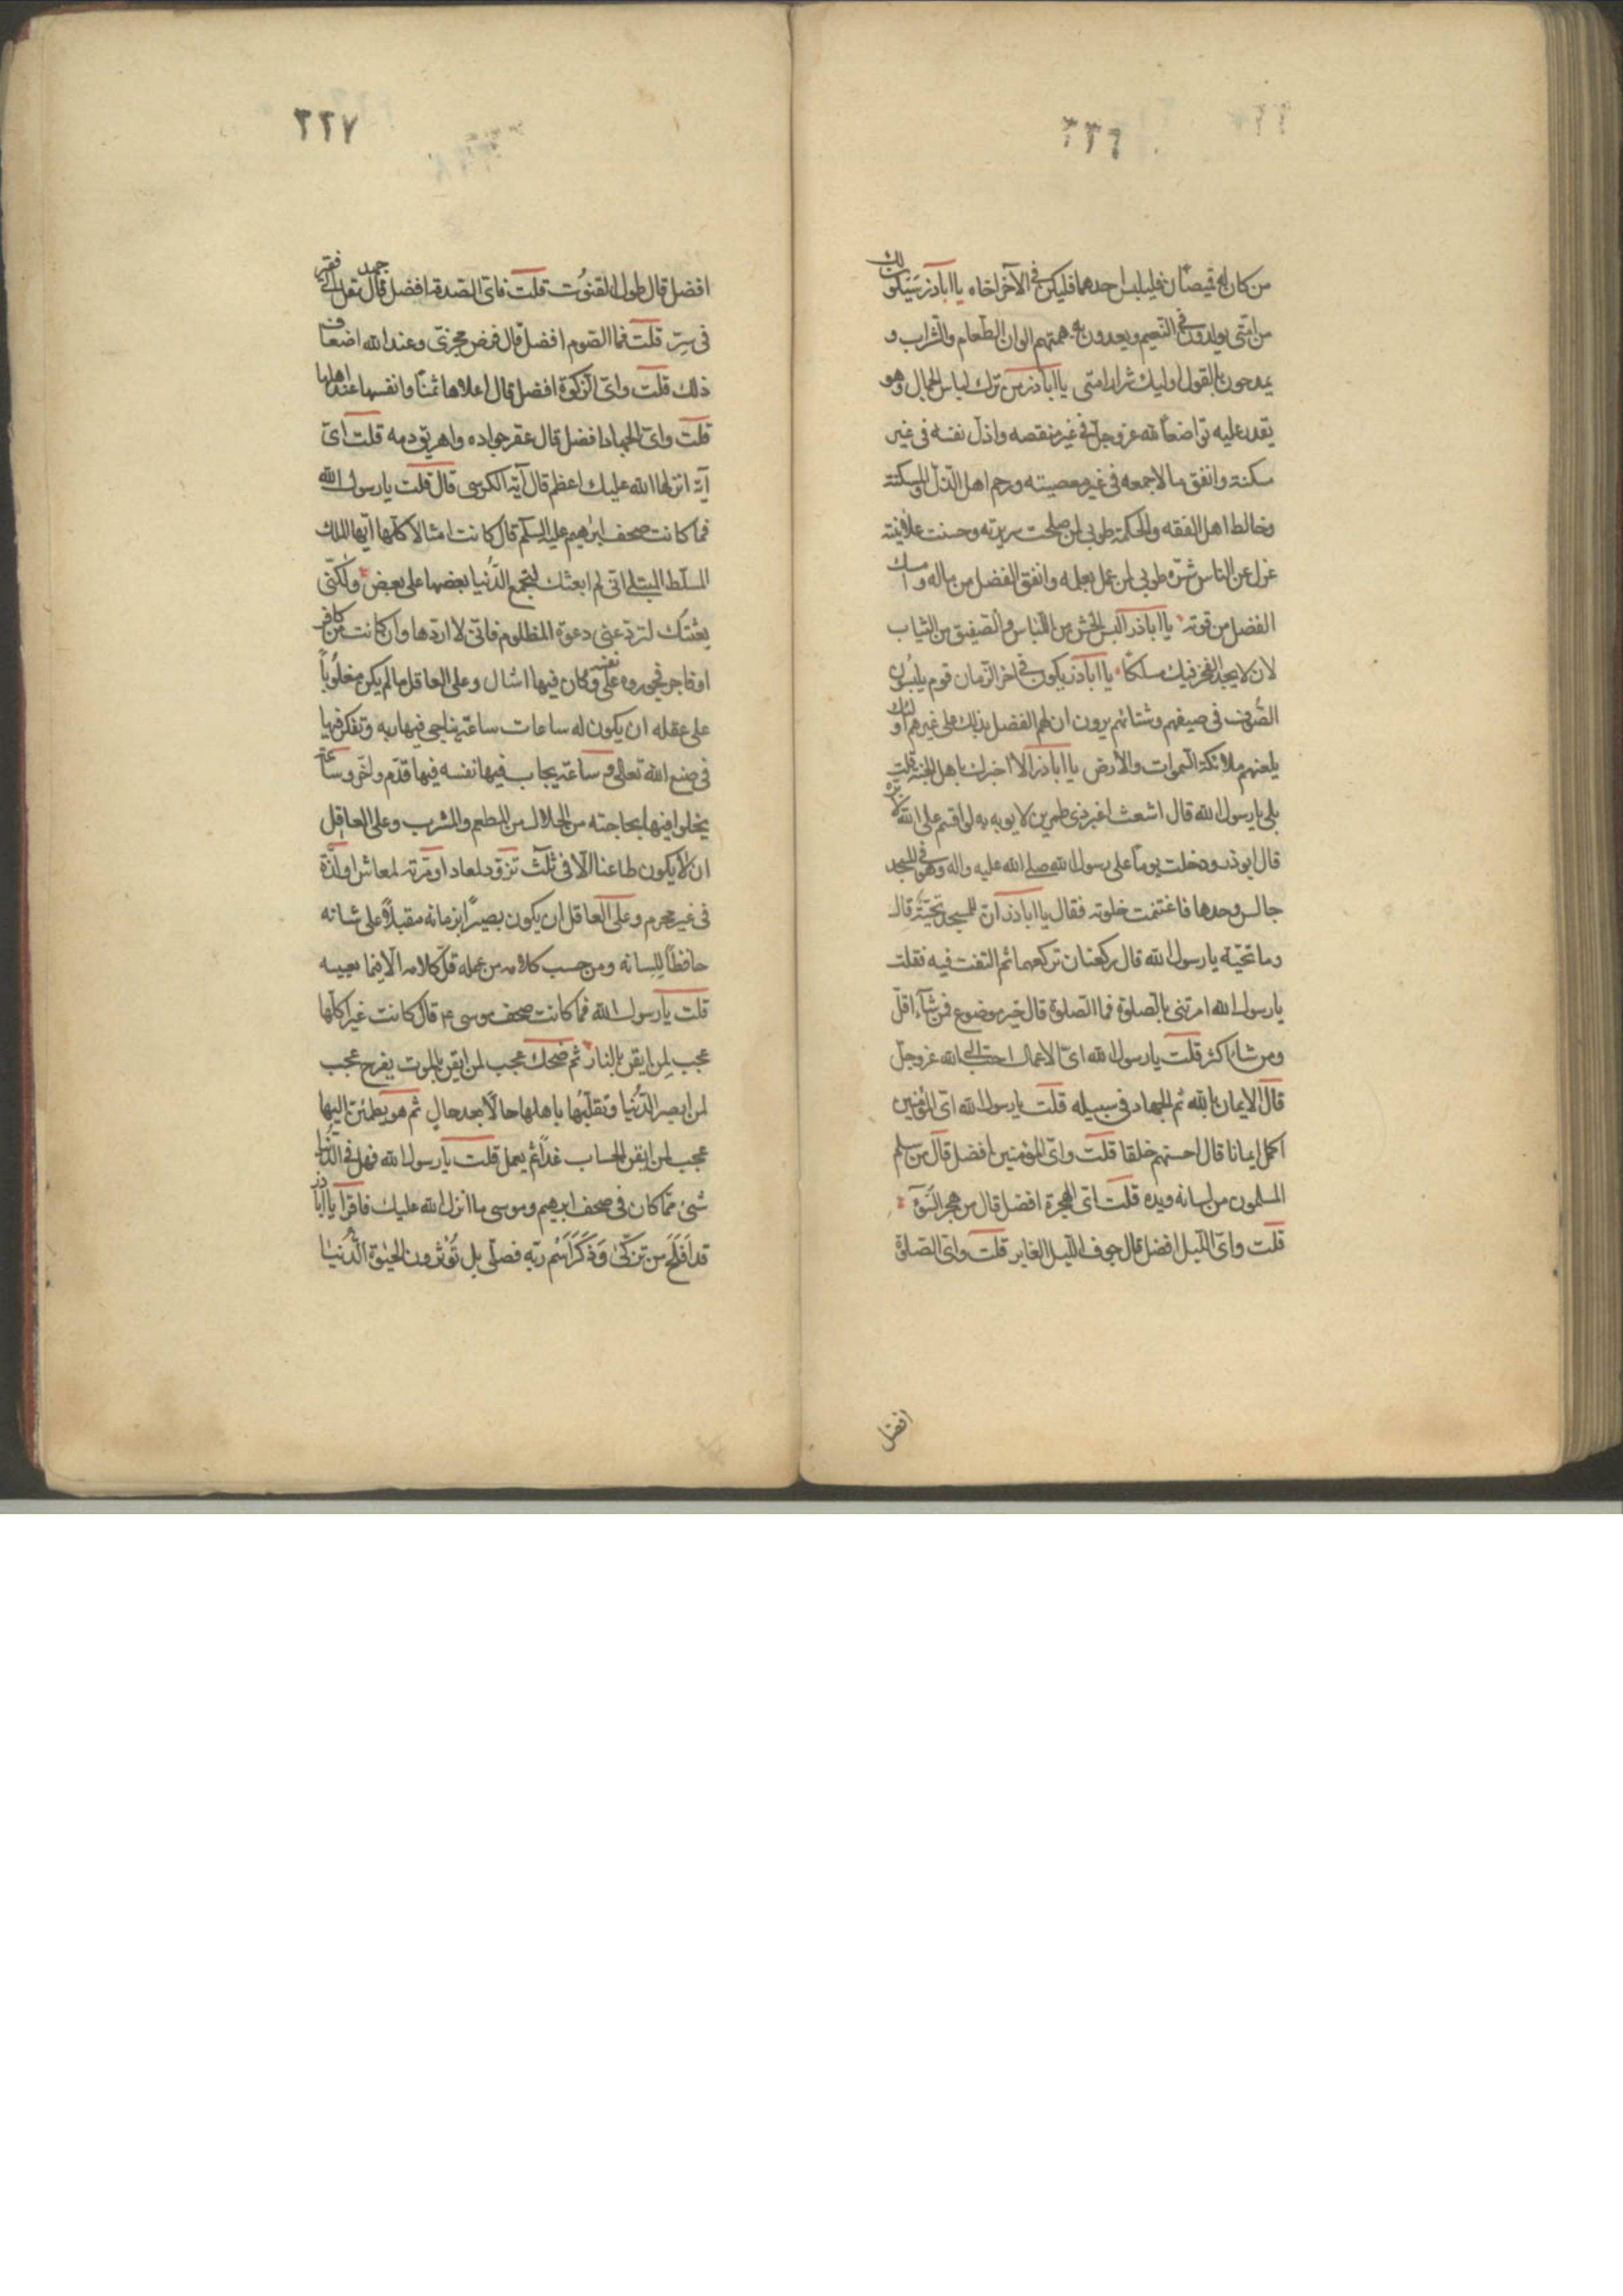 ٢٢٦
من كان له قميصان فليلبس احدهما فليكن في الآخر اخاه يا اباذر سيكون ناس
من امتى يولدون في النعيم ويعدون به همتهم الوان الطعام والشراب و
يمدحون بالقول اوليك شرار امتى يا اباذر من ترك لباس الجمال وهو
يقدر عليه تواضعاً لله عز وجل في غير منقصه واذل نفسه في غير
مسكنة وانفق مالا جمعه في غير معصيته ورحم اهل الذل والمسكنة
وخالط اهل الفقه والحكمة طوبى لمن صلحت سريرته وحسنت علانيته
عزل عن الناس شره طوبى لمن عمل بعلمه وانفق الفضل من ماله وامسك
الفضل من قوته يا اباذر البس الخشن من اللباس والصفيق من الثياب
لان لا يجد الفخر فيك مسلكا يا اباذر يكون في اخر الزمان قوم يلبسون
الصوف في صيفهم وشتائهم يرون ان لهم الفضل بذلك على غيرهم اولئك
يلعنهم ملائكة السموات والارض يا اباذر الا اخبرك باهل الجنة قلت
بلى يا رسول الله قال اشعث اغبر ذى طمرين لا يوبه به لو اقسم على الله لابره
قال ابوذر ودخلت يوماً على رسول الله صلى الله عليه واله وهو في المسجد
جالس وحدها فاغتنمت خلوته فقال يا اباذر ان للمسجد تحيّة قال
وما تحيّة يا رسول الله قال ركعتان تركعهما ثم التفت فيه فقلت
يا رسول الله امرتنى بالصلوة فما الصلوة قال خير موضوع فمن شآء اقلّ
ومن شاء اكثر قلت يا رسول الله اىّ الاعمال احبّ الى الله عز وجلّ
قال الايمان بالله ثم الجهاد في سبيله قلت يا رسول الله اى المؤمنين
اكمل ايمانا قال احسنهم خلقا قلت واىّ المؤمنين افضل قال من سلم
المسلمون من لسانه ويده قلت اى الهجرة افضل قال من هجر السّوٓء
قلت واىّ الليل افضل قال جوف الليل الغابر قلت واىّ الصلاة
افضل
٢٢٧
افضل قال طول القنوت قلت فاىّ الصدقة افضل قال جهد مقل الى فقير
في سرّ قلت فما الصوم افضل قال فرض مجزى وعند الله اضعاف
ذلك قلت واىّ الزكوة افضل قال اعلاها ثمناً وانفسها عند اهلها
قلت واىّ الجهاد افضل قال عقر جواده واهريق دمه قلت اىّ
آية انزلها الله عليك اعظم قال آية الكرسى قال قلت يا رسول الله
فما كانت صحف ابرٰهيم عليه السلم قال كانت امثالا كلّها ايّها الملك
المسلّط المبتلى انى لم ابعثك لتجمع الدّنيا بعضها على بعض ولكنّى
بعثتك لتردّ عنى دعوة المظلوم فانّى لا اردّها وان كانت من كافر
او فاجر فجوره على نفسه وكان فيها امثال وعلى العاقل ما لم يكن مغلوباً
على عقله ان يكون له ساعات ساعة يناجى فيها ربه وتفكر فيها
في صنع الله تعالى وساعة يحاسب فيها نفسه فيها قدّم واخّر وساعة
يخلوا فيها بحاجته من الحلال من المطعم والمشرب وعلى العاقل
ان لا يكون طاعنا الّا فى ثلٰث تزوّد لمعاد او مرّمة لمعاش او لذّة
فى غير محرم وعلى العاقل ان يكون بصيراً بزمانه مقبلاً على شانه
حافظاً للسانه ومن حسب كلامه من عمله قلّ كلامه الا فيما يعنيه
قلت يا رسول الله فما كانت صحف موسى ع قال كانت عبرا كلّها
عجب لمن ايقن بالنار ثم ضحك عجب لمن ايقن بالموت يفرح عجب
لمن ابصر الدّنيا وتقلّبها باهلها حالاً بعد حال ثم هو يطمئنّ اليها
عجب لمن ايقن الحساب غداً ثم يعمل قلت يا رسول الله فهل في الدّنيا
شئ ممّا كان فى صحف ابرهيم وموسى ما انزل الله عليك فاقرأ يا اباذر
قد افلح من تزكّى وَذَكَرَ اسْمَ ربّه فصلّى بل تُؤثرون الحيٰوة الدُّنيٰا